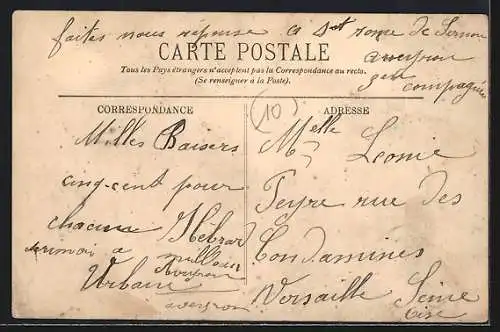 faites nous réponse a St rome de Cernon
CARTE POSTALE
aveyron
Tous les Pays étrangers n'acceptent pas la Correspondance au recto.
(Se renseigner à la Poste).
compagnie
CORRESPONDANCE
ADRESSE
10
Milles Baisers
cinq-cent pour
chacune Hébrar
a
Urbain
aveyron
Melle Leonie
Peyre rue des
Condamines
Versaille Seine
oise